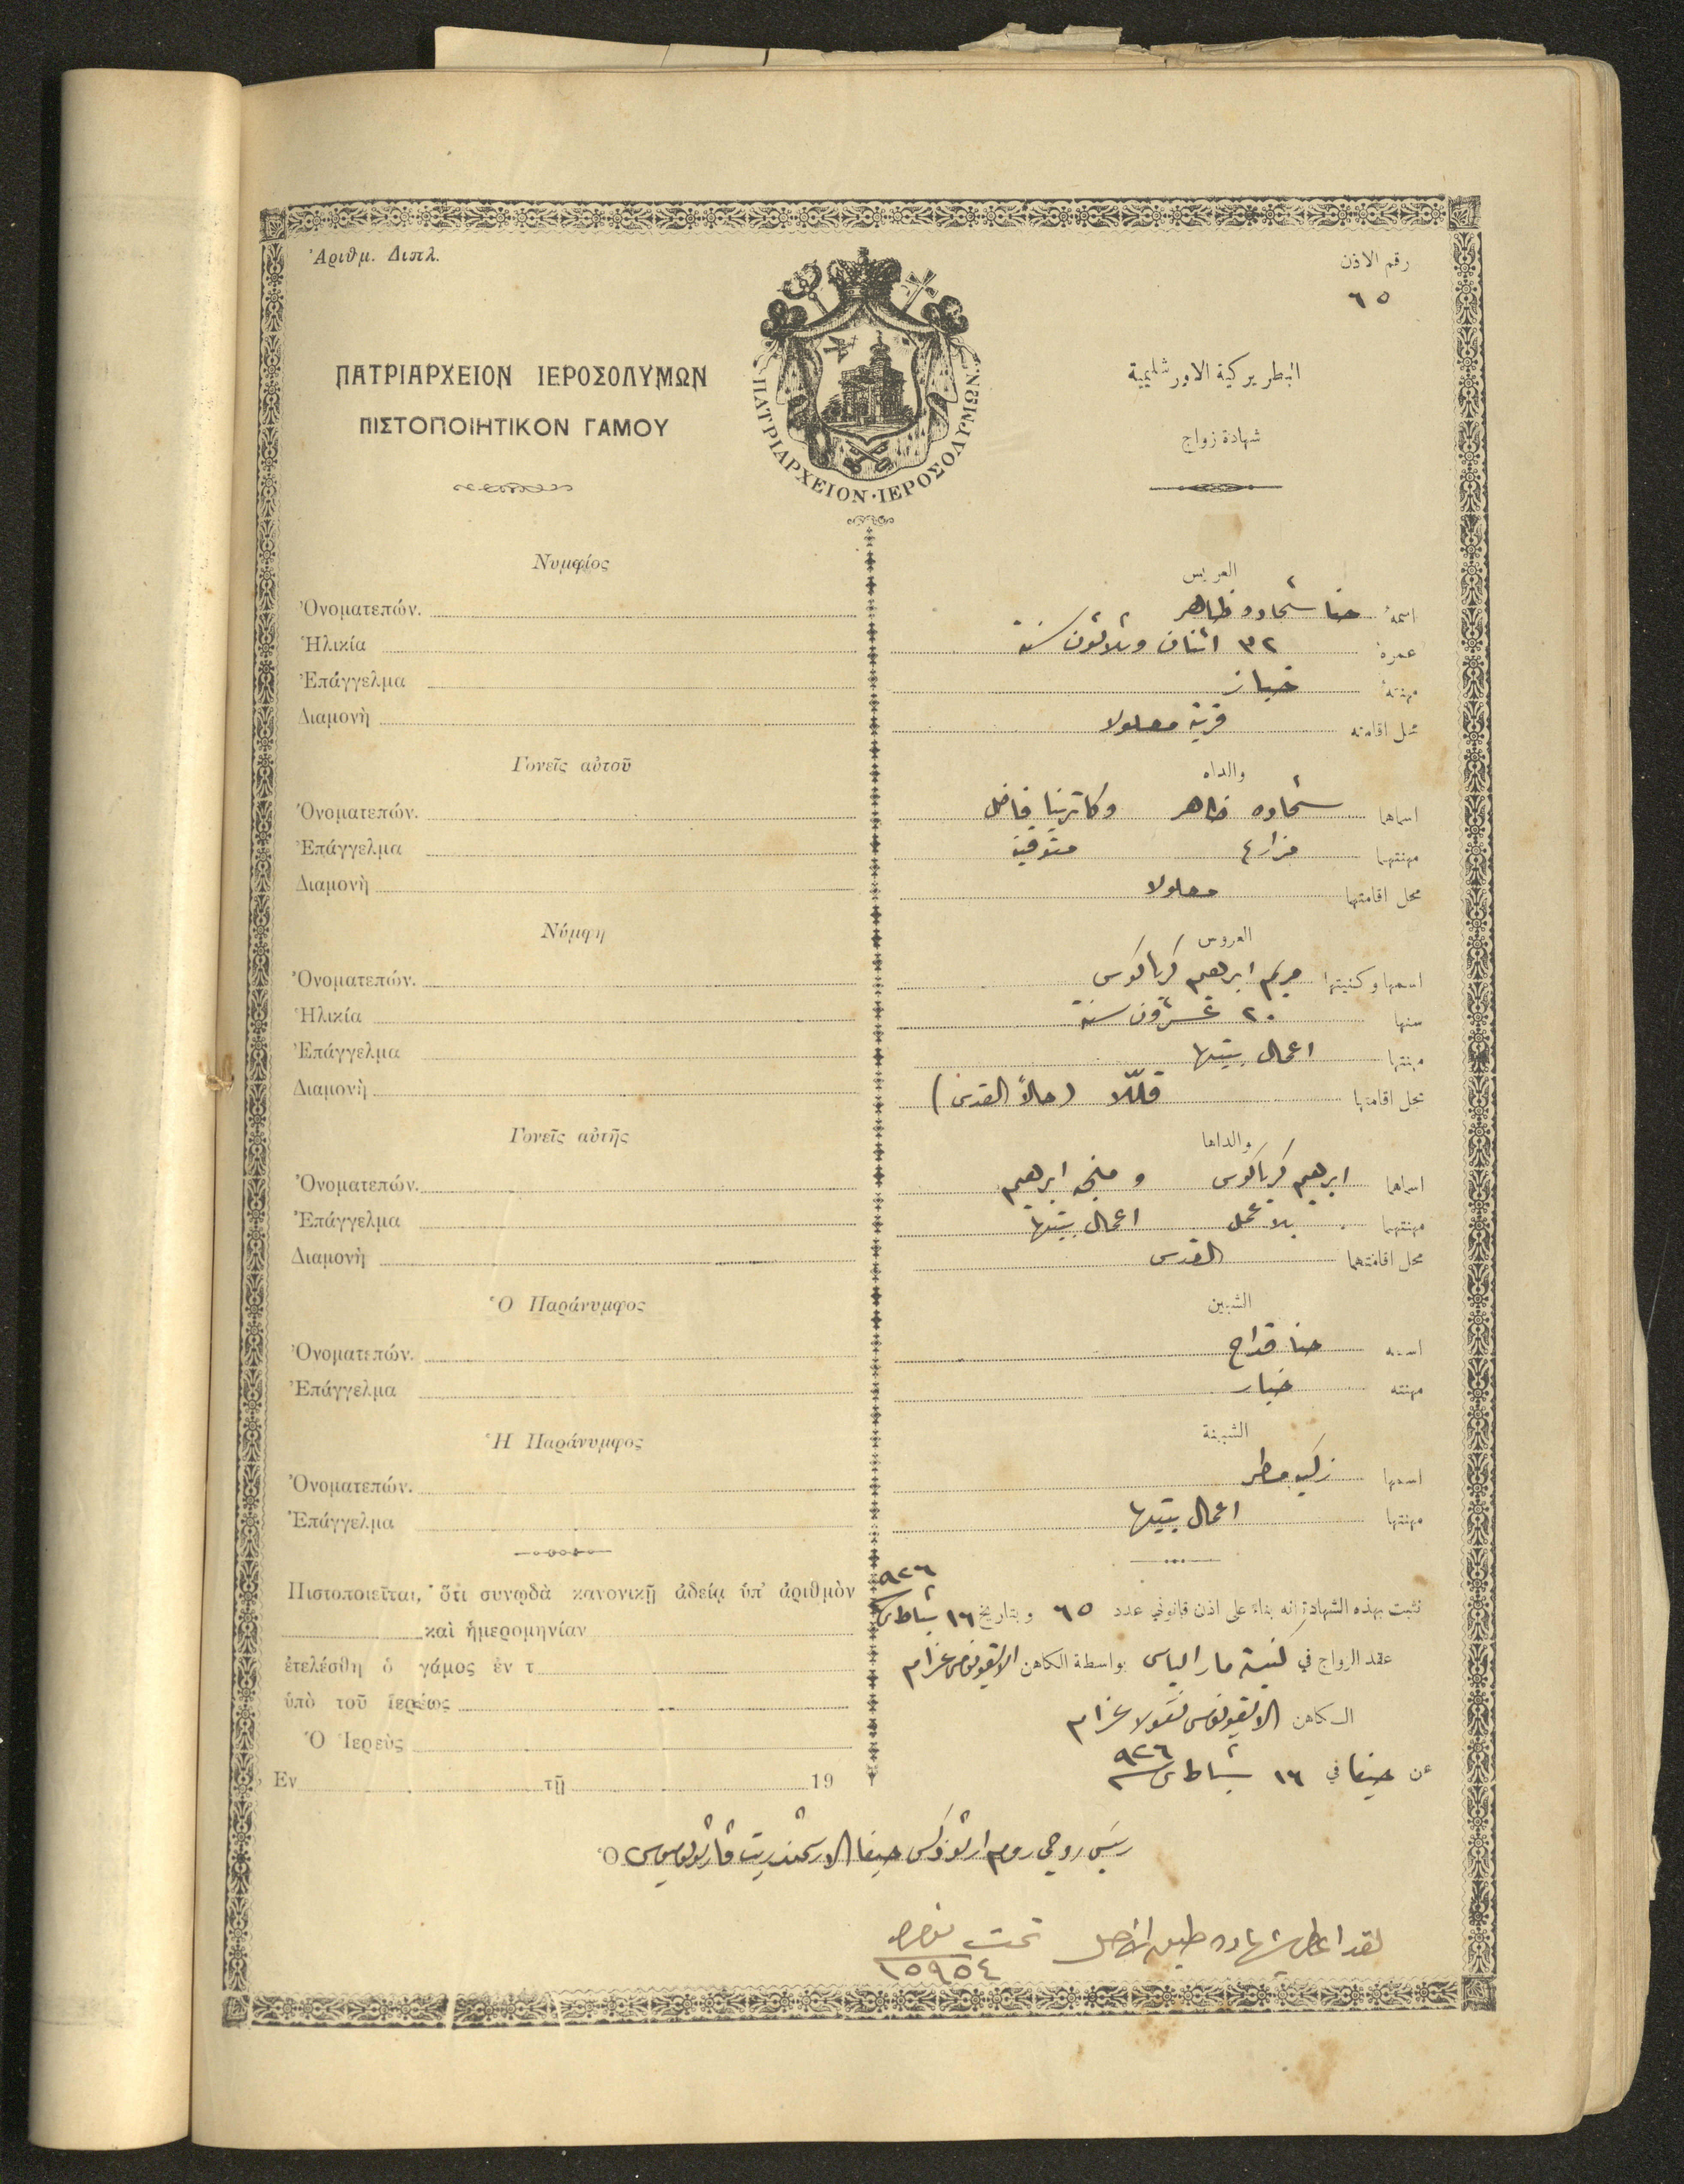 Ἀριθμ. Διπλ.
رقم الاذن
٦٥
ΠΑΤΡΙΑΡΧΕΙΟΝ ΙΕΡΟΣΟΛΥΜΩΝ
ΠΙΣΤΟΠΟΙΗΤΙΚΟΝ ΓΑΜΟΥ
ΠΑΤΡΙΑΡΧΕΙΟΝ·ΙΕΡΟΣΟΛΥΜΩΝ
البطريركية الاورشليمية
شهادة زواج
Νυμφίος
Ὀνοματεπών.
Ἡλικία
Ἐπάγγελμα
Διαμονὴ
Γονεῖς αὐτοῦ
Ὀνοματεπών.
Ἐπάγγελμα
Διαμονὴ
Νύμφη
Ὀνοματεπών.
Ἡλικία
Ἐπάγγελμα
Διαμονὴ
Γονεῖς αὐτῆς
Ὀνοματεπών.
Ἐπάγγελμα
Διαμονὴ
Ὁ Παράνυμφος
Ὀνοματεπών.
Ἐπάγγελμα
Ἡ Παράνυμφος
Ὀνοματεπών.
Ἐπάγγελμα
Πιστοποιεῖται, ὅτι συνῳδὰ κανονικῇ ἀδείᾳ ὑπ' ἀριθμὸν
καὶ ἡμερομηνίαν
ἐτελέσθη ὁ γάμος ἐν τ
ὑπὸ τοῦ ἱερέως
Ὁ Ἱερεὺς
Ἐν τῇ 19
العريس
اسمهُ حنا شحاده ظاهر
عمرهُ ٣٢ اثنان وثلاثون سنة
مهنتهُ خباز
محل اقامته قرية معلولا
والداه
اسماهما شحاده ظاهر وكاترينا فاضل
مهنتهما مزارع متوفية
محل اقامتهما معلولا
العروس
اسمها وكنيتها مريم ابرهيم كرياكوس
سنها ٢٠ عشرون سنة
مهنتها اعمال بيتها
محل اقامتها (حالاً القدس)
والداها
اسماهما ابرهيم كرياكوس و ابرهيم
مهنتهما بلا عمل اعمال بيتها
محل اقامتهما القدس
الشبين
اسمه حنا
مهنته
الشبينة
اسمها زكيه مطر
مهنتها اعمال بيتها
نثبت بهذه الشهادة انه بناءً على اذن قانوني عدد ٦٥ وبتاريخ ١٦ شباط ٩٢٦
عقد الزواج في كنيسة مار الياس بواسطة الكاهن الايقونومس عزام
الكاهن الايقونومس نقولا عزام
عن حيفا في ١٦ شباط ٩٢٦
Ὁ
رئيس روحي روم ارثوذكس حيفا الارشمندريت
لقد اعطي شهاده طبق الاصل تحت نمره
١٥٩٥٤